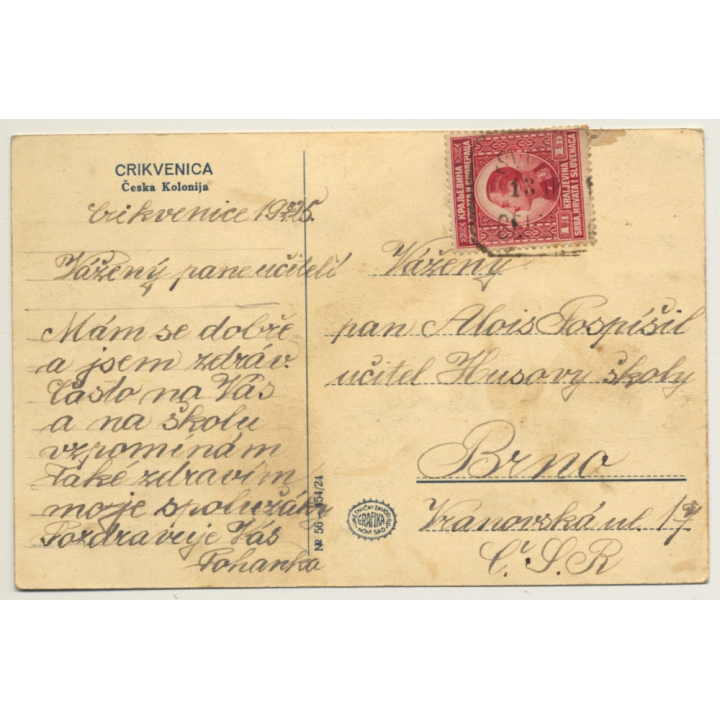 CRIKVENICA
Česka Kolonija
Crikvenice 1925.
Vážený pane učiteli
Mám se dobře
a jsem zdráv.
Často na Vás
a na školu
vzpomínám
Také zdravím
moje spolužáky
Pozdravuje Vás
Pohanka
№ 56 - 454/24
UMETNIČKI ZAVOD
GRAFIKA
NOVI SAD
КРАЉЕВИНА
1 Д
KRALJEVINA
SRBA, HRVATA I SLOVENACA
1 D
Vážený
pan Alois Pospíšil
učitel Husovy školy
Brno
Vranovská ul. 17
Č. S. R